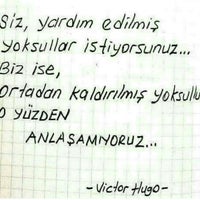 Siz, yardım edilmiş
yoksullar istiyorsunuz...
Biz ise,
ortadan kaldırılmış yoksullu
O YÜZDEN
ANLAŞAMIYORUZ...
-Victor Hugo-